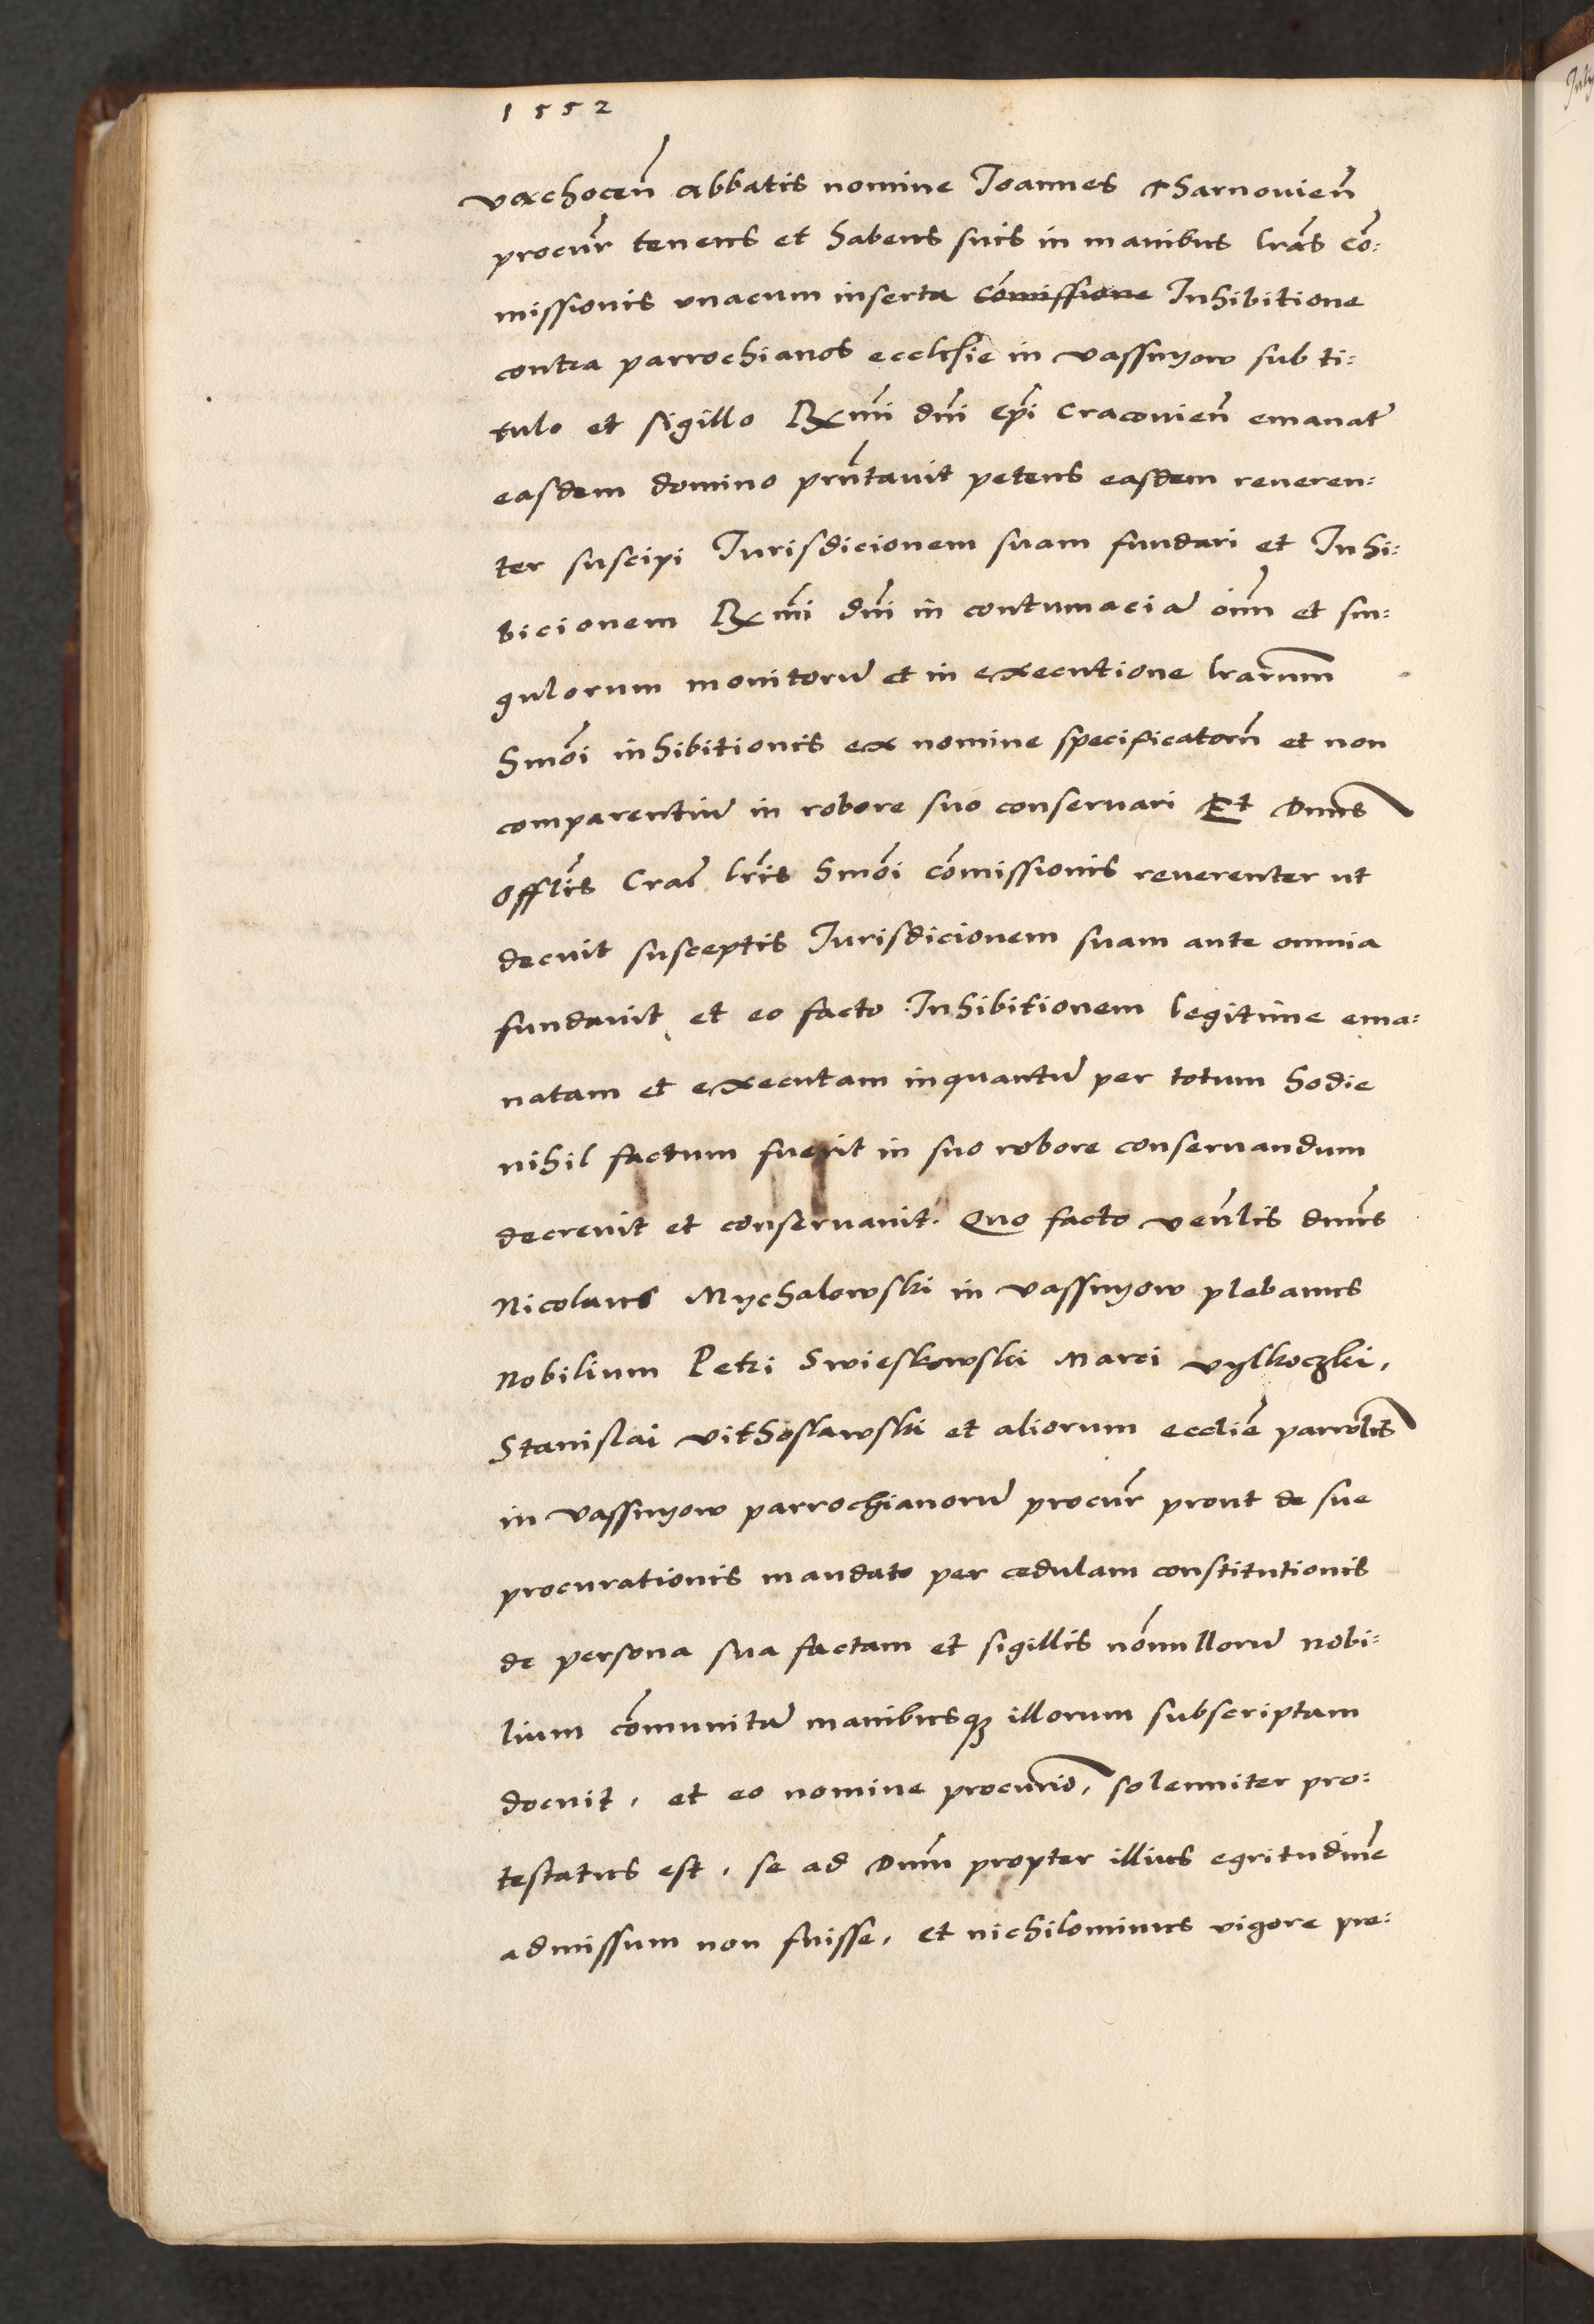 1552
vachocen̄ abbatis nomine Joannes Tharnovien̄
procur̄ tenens et habens suis in manibus lr̄as cō:
missionis unacum inserta cōmissione Inhibitione
contra parrochianos ecclesie in vassnyow sub ti:
tulo et sigillo Rx̄mi dn̄i ep̄i Cracovien̄ emanat̄
easdem domino prn̄tavit petens easdem reveren:
ter suscipi Jurisdicionem suam fundari et Inhi:
bicionem Rx̄mi dn̄i in contumaciā oīm et sin:
gulorum monitorū et in executione lr̄arum
hmōi inhibitionis ex nomine specificatorū et non
comparentiū in robore suo conservari Et Dn̄us
Offl̄is Cra͡c lr̄is hmōi cōmissionis reverenter ut
decuit susceptis Jurisdicionem suam ante omnia
fundavit et eo facto Inhibitionem legitime ema:
natam et executam inquantū per totum hodie
nihil factum fuerit in suo robore conservandum
decrevit et conservavit. Quo facto ven̄lis dn̄us
Nicolaus Mychalowski in vassnyow plebanus
Nobilium Petri Swieskowski Marci vylkoczki,
Stanislai vithoslawski et aliorum eccliē parrolis
in vassnyow parrochianorū procur̄ prout de sue
procurationis mandato per cedulam constitutionis
de persona sua factam et sigillis nōnullorū nobi:
lium cōmunitā manibusq₃ illorum subscriptam
docuit, et eo nomine procurio, solenniter pro:
testatus est, se ad Dn̄um propter illius egritudinē
admissum non fuisse, et nichilominus vigore pre: